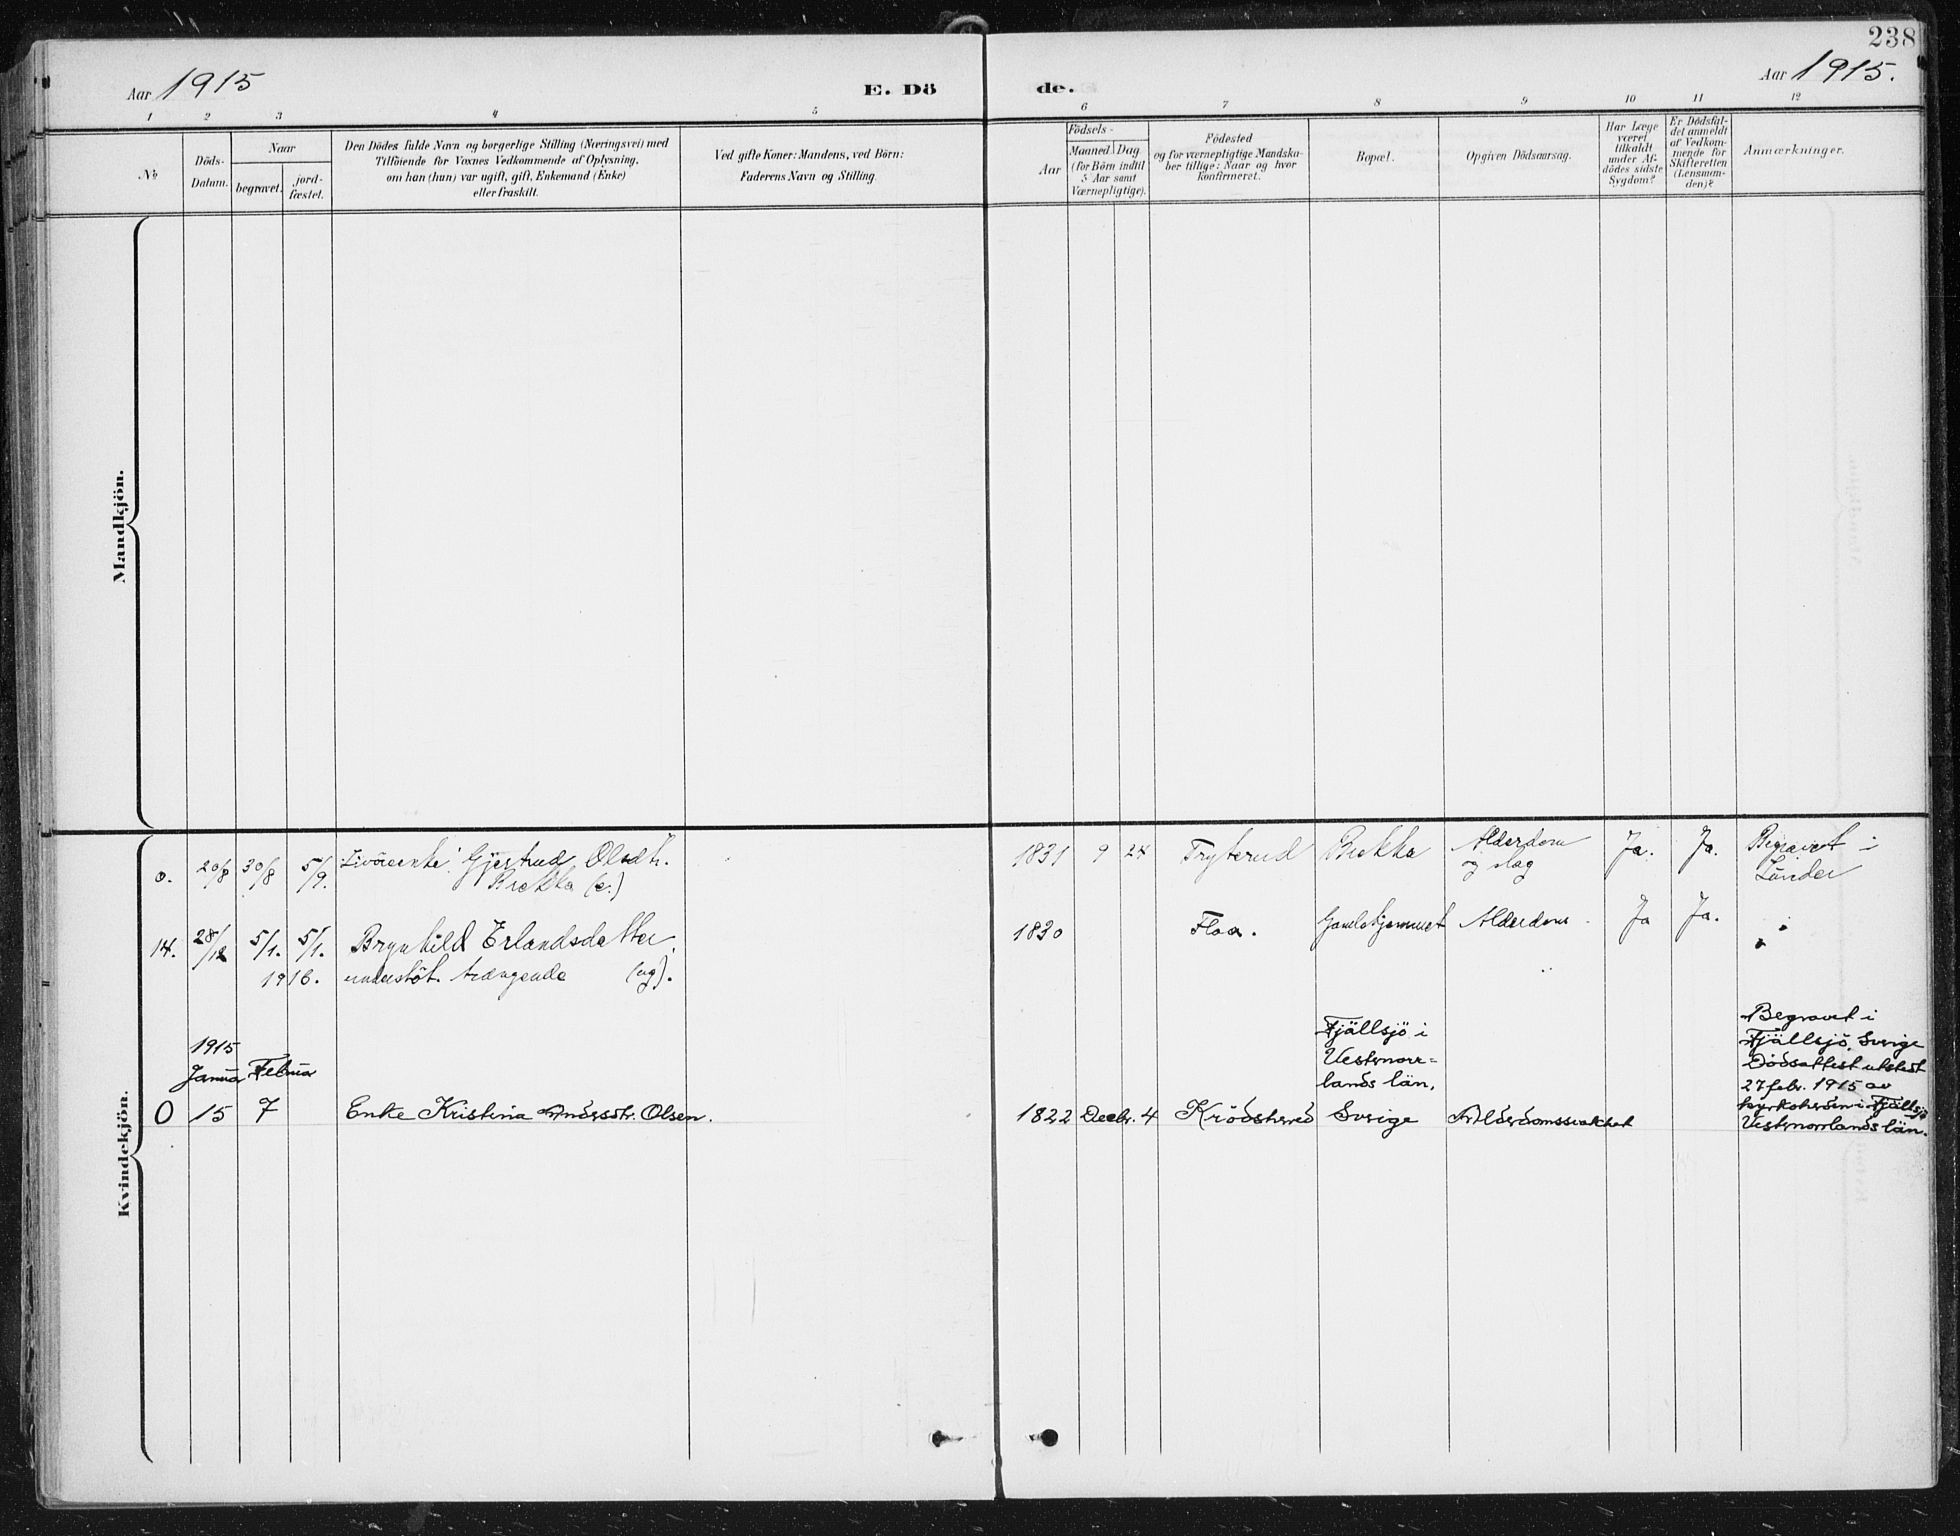 238
Aar 1915
E. Dö
de.
Aar 1915.
1 2 3 4 5 6 7 8 9 10 11 12
No
Döds-
Datum.
Naar
begravet.
jord-
fæstet.
Den Dödes fulde Navn og borgerlige Stilling (Næringsvei) med
Tilföiende for Voxnes Vedkommende af Oplysning,
om han (hun) var ugift, gift, Enkemand (Enke)
eller fraskilt.
Ved gifte Koner: Mandens, ved Börn:
Faderens Navn og Stilling.
Födsels-
Aar
Maaned Dag
(for Börn indtil
5 Aar samt
Værnepligtige).
Födested
og for værnepligtige Mandska-
ber tillige: Naar og hvor
konfirmeret.
Bopæl.
Opgiven Dödsaarsag.
Har Læge
været
tilkaldt
under Af-
dödes sidste
Sygdom?
Er Dödsfal-
det anmeldt
af Vedkom-
mende for
Skifteretten
(Lensman-
den)?
Anmærkninger.
Mandkjön.
Kvindekjön.
20/8 30/8 5/9. Livöreenke Gjertrud Olsdtr.
Brekka (e.)
1831 9 24 Tryterud Brekka Alderdom
og slag
Ja. Ja. Begravet i
14. 28/12 5/1. 5/1. Brynhild Erlandsdatter,
1916. understöt. trængende (ug).
1830 Floa. Gamlehjemmet Alderdom Ja Ja.
1915
Januar Februar
O 15 7 Enke Kristina Andersdtr. Olsen.
1822 Decbr. 4 Krödsherred
Fjällsjö i
Vesternorr-
lands län,
Sverige
Alderdomssvakhet
Begravet i
Fjällsjö, Sverige
Dödsattest utstedt
27 febr. 1915 av
kyrkoherden i Fjällsjö
Vesternorrlands län.